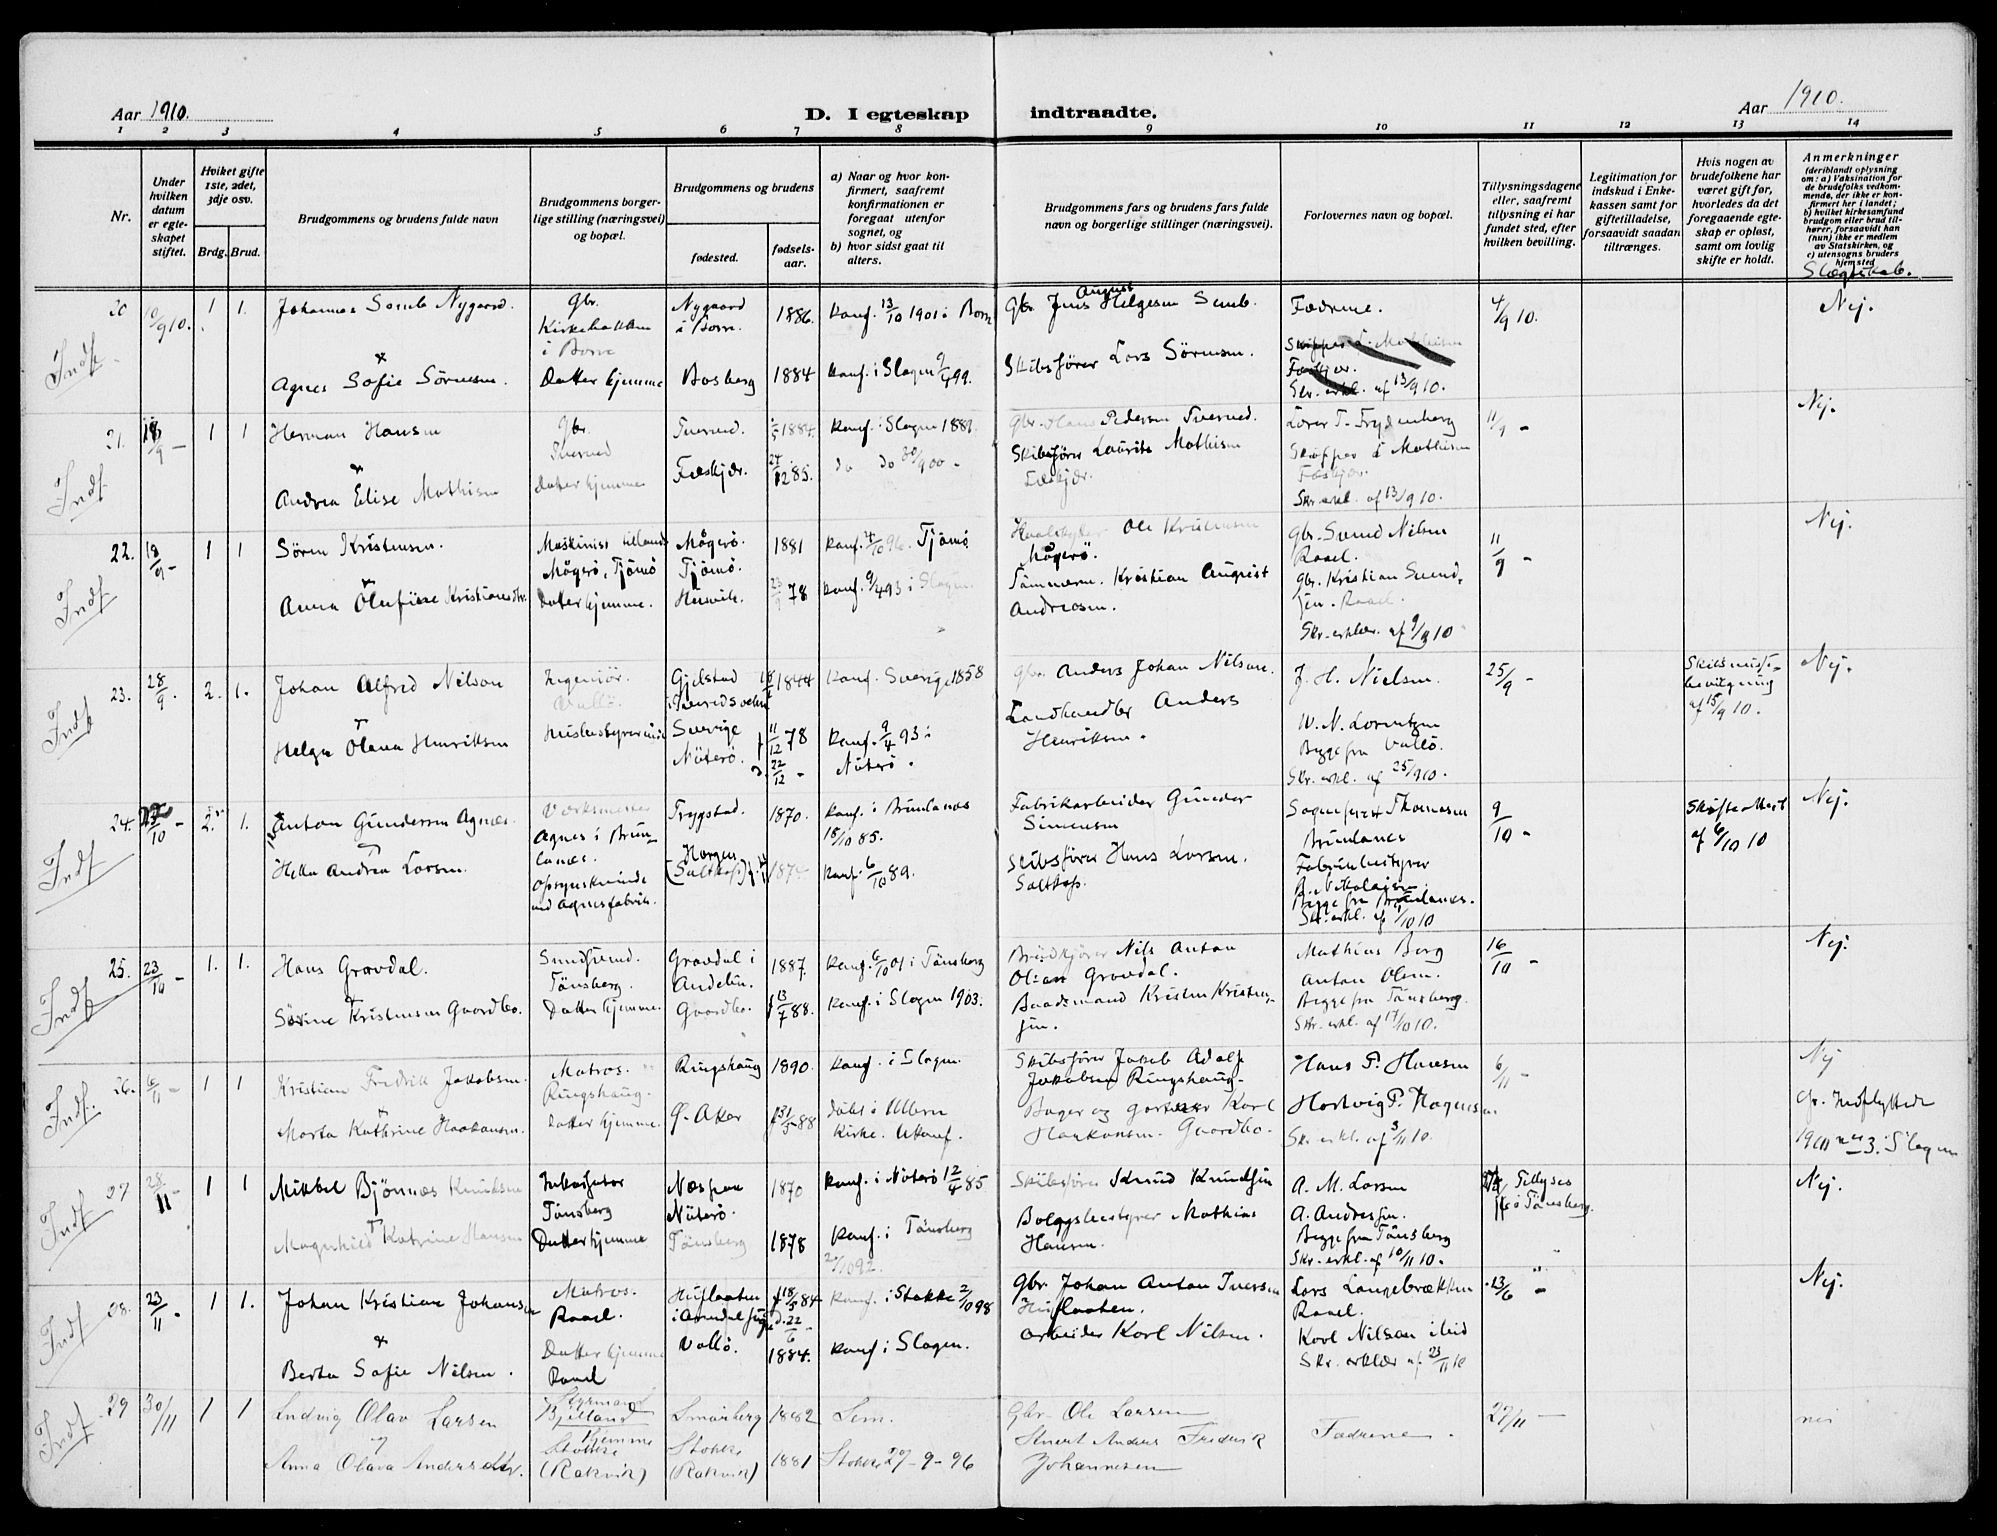 Aar 1910.
D. I egteskap indtraadte.
Aar 1910.
1 2 3 4 5 6 7 8 9 10 11 12 13 14
Nr.
Under hvilken datum er egteskapet stiftet.
Hviket gifte 1ste, 2det, 3dje osv.
Brdg. Brud.
Brudgommens og brudens fulde navn
Brudgommens borgerlige stilling (næringsvei) og bopæl.
Brudgommens og brudens
fødested.
fødselsaar.
a) Naar og hvor konfirmert, saafremt konfirmationen er foregaat utenfor sognet, og
b) hvor sidst gaat til alters.
Brudgommens fars og brudens fars fulde navn og borgerlige stillinger (næringsvei).
Forlovernes navn og bopæl.
Tillysningsdagene eller, saafremt tillysning ei har fundet sted, efter hvilken bevilling.
Legitimation for indskud i Enkekassen samt for giftetilladelse, forsaavidt saadan tiltrænges.
Hvis nogen av brudefolkene har været gift før, hvorledes da det foregaaende egteskap er opløst, samt om lovlig skifte er holdt.
Anmerkninger (deriblandt oplysning om: a) Vaksination for de brudefolks vedkommende, der ikke er konfirmert her i landet; b) hvilket kirkesamfund brudgom eller brud tilhører, forsaavidt han (hun) ikke er medlem av Statskirken, og c) utensogns bruders hjemsted
Slægtskab.
20 10/9 10. 1 1. Johannes Semb Nygaard. Gbr. Kirkebakken i Borre Nygaard i Borre. 1886. konf. 13/10 1901 i Borre Gbr. Jens August Helgesen Semb. Fædrene. 4/9 10. Nej.
Indf.
Agnes Sofie Sørensen. Datter hjemme Basberg 1884 konf. i Slagen 99. Skibsfører Lars Sørensen. Skr. erkl. af 13/9 10.
21. 18/9 - 1 1 Herman Hansen Gbr. Tverved Tverved. 1884. konf. i Slagen Gbr. Hans Pedersen Tverved. Lærer T. Frydenberg 11/9 - Nej.
Indf.
Andrea Elise Mathisen Datter hjemme Fæskjær. 24/12 85. do do 30/9 00 - Skibsfører Laurits Mathisen Fæskjær. Skipper L Mathisen Fæskjær. Skr. erkl. af 13/9 10.
22. 18/9 - 1 1 Søren Kristensen. Maskinist Mågerø, Tjømø Mågerø. Tjømø. 1881 konf. 4/10 96. Tjømø Ole Kristensen Mågerø. Gbr. Svend Nilsen Raael. 11/9 - Nej.
Indf.
Anna Olufine Kristiansdtr. Datter hjemme. Husvik. 23/9 78 konf. 9/4 93 i Slagen. Tømmerm. Kristian August Andresen. Gbr. Kristian Svendsen. Raael. Skr. erklær. af 9/9 10
23. 28/9. 2. 1. Johan Alfred Nilson Ingeniør. Vallø. Sverige 1844 konf. Sverige 1858 Gbr. Anders Johan Nilson. J. H. Nielsen. 25/9 - Skilsmissebevilgning af 15/9 10. Nej.
Indf.
Helga Olava Henriksen Husbestyrerinde Nøterø. 11/12 78 22/12 - konf. 9/4 93 i Nøterø. Landhandler Anders Henriksen. W. N. Lorentzen Begge fra Vallø. Skr. erkl. af 25/9 10.
24. 10 - 2. 1. Anton Gundersen Agnæs. Værksmester Agnes i Brunlanes. Trygstad. 1870. konf. i Brunlanes 18/10 85. Fabrikarbeider Gunder Simensen Thomasen Brunlanes 9/10 - Skifte Attest af 6/10 10 Nej.
Indf.
Helle Andrea Larsen. Opsynskvinde ved Agnesfabrik. Horgen (Saltkop.) konf. 6/10 89. Skibsfører Hans Larsen. Saltkop. Fabrikbestyrer Nikolaisen Begge fra Brunlanes. Skr. erkl. af 10 10
25. 23/10 - 1. 1. Hans Gravdal. Tønsberg. Gravdal i Andebu. 1887 konf. 6/10 01 i Tønsberg Brødkjører Nils Anton Olsen Gravdal. Mathias Berg 16/10 - Nej.
Indf.
Sørine Kristensen Gaardbo. Datter hjemme. Gaardbo. f 13/7 88. konf. i Slagen 1903. Baadsmand Kristen Kristensen. Anton Olsen. Begge fra Tønsberg. Skr. erkl. af 17/10 10.
26. 6/11 - 1 1 Kristian Fredrik Jakobsen. Matros. Ringshaug. Ringshaug 1890. konf. i Slagen. Skibsfører Jakob Adolf Jakobsen Ringshaug. Hans P. Hansen 6/11 - Nej
Indf.
Marta Kathrine Haakonsen. Datter hjemme. Ø. Aker 88 døbt i Ullern Kirke. Ukonf. Bager og gartner Karl Haakonsen. Gaardbo. Hartvig P. Hagensen. Skr. erkl. af 3/11 10. Indflyttede 1901 nr 3. Slagen
27 28/11 - 1 1 Mikkel Bjønnæs Knudsen Inkassator Tønsberg Næsgaa Nøterø. 1870 konf. i Nøterø 12/4 85 Skibsfører Knud Knudsen A. M. Larsen Tillyses i Tønsberg. Nej.
Indf.
Magnhild Katrine Hansen Datter hjemme Tønsberg 1878 konf. i Tønsberg 92. Bolagsbestyrer Mathias Hansen. A. Andresen. Begge fra Tønsberg Skr. erkl. af 10/11 10.
28. 23/11 - 1 1. Johan Kristian Johansen Matros. Raael. f 18/5 84 d. 22/6 konf. i Stokke 2/10 98 Gbr. Johan Anton Iversen Lars Langebrækken Raael. 13/6 - Nej.
Indf.
Berta Sofie Nilsen. Datter hjemme Raael Vallø. 1884. konf. i Slagen. Arbeider Karl Nilsen. Karl Nilsen ibid Skr. erklær af 23/11 10
29 30/11 1 1 Ludvig Olav Larsen Styrmand Bjelland Smørberg 1882 Sem. Gbr. Ole Larsen Fædrene. 27/11 - nei
Indf.
og
Anna Olava Andersdtr. hjemme Stokke (Rakvik) Stokke (Rakvik) 1881 Stokke 27-9-96 Anders Fredrik Johannesen